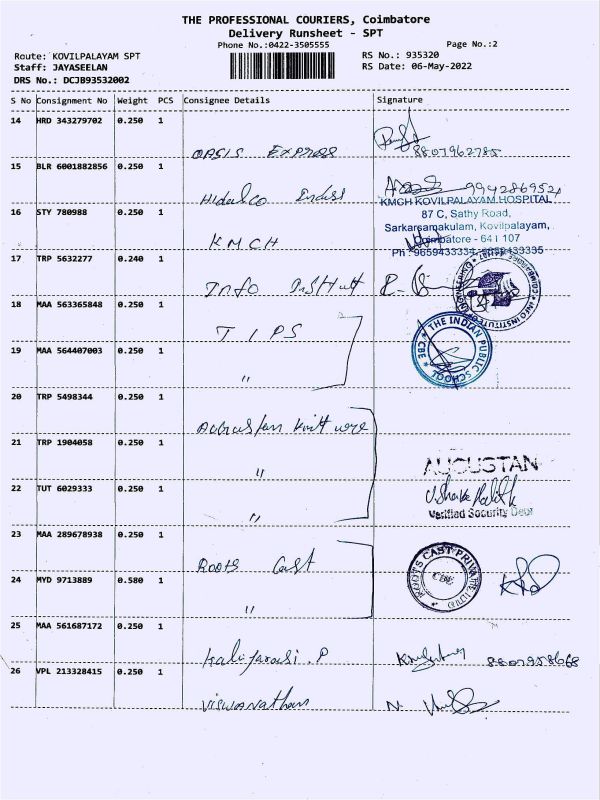 THE PROFESSIONAL COURIERS, Coimbatore
Delivery Runsheet - SPT
Phone No.:0422-3505555
Page No.:2
Route: KOVILPALAYAM SPT
RS No.: 935320
Staff: JAYASEELAN
RS Date: 06-May-2022
DRS No.: DCJB93532002
S No Consignment No Weight PCS Consignee Details Signature
14 HRD 343279702 0.250 1
OASIS EXPRESS 8807962785
15 BLR 6001882856 0.250 1
Hidalco 9942869521
KMCH KOVILPALAYAM HOSPITAL
16 STY 780988 0.250 1
87 C, Sathy Road,
Sarkarsamakulam, Kovilpalayam,
KMCH Coimbatore - 641 107
Ph : 9659433334, 9659433335
17 TRP 5632277 0.240 1
Info
18 MAA 563365848 0.250 1
TIPS
THE INDIAN PUBLIC SCHOOL * CBE *
19 MAA 564407003 0.250 1
"
20 TRP 5498344 0.250 1
21 TRP 1904058 0.250 1
"
AUGUSTAN
22 TUT 6029333 0.250 1
"
Verified Security Dept
23 MAA 289678938 0.250 1
Roots Cast
ROOTS CAST PRIVATE LIMITED
CBE
24 MYD 9713889 0.580 1
"
25 MAA 561687172 0.250 1
8807958668
26 VPL 213328415 0.250 1
Viswanathan